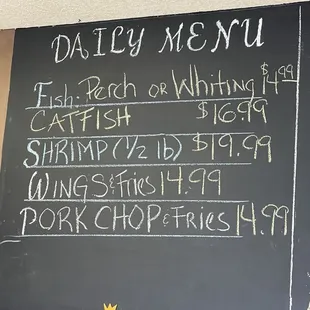 DAILY MENU
Fish: Perch or Whiting $14.99
CATFISH $16.99
SHRIMP (1/2 lb) $19.99
WINGS & Fries 14.99
PORK CHOP & FRIES 14.99